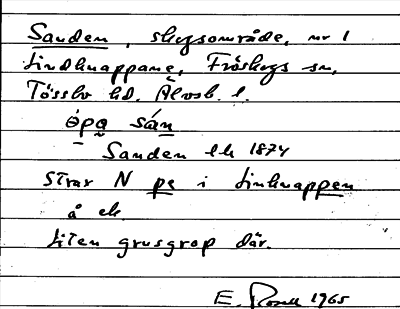 Sanden, skogsområde, nr 1
Lindknappane, Fröskogs sn,
Tössbo hd. Älvsb. l.
ǿpa sán
Sanden ek 1874
Strax N pe i Linknappen
å ek
Liten grusgrop där.
E. Rosell 1965